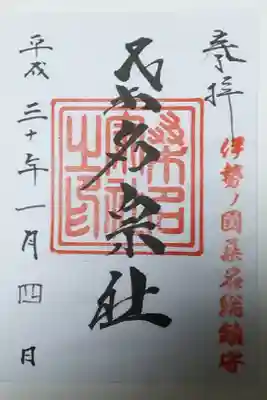 奉拝
伊勢ノ國桑名総鎮守
桑名宗社
桑名宗社之印
平成三十年一月四日